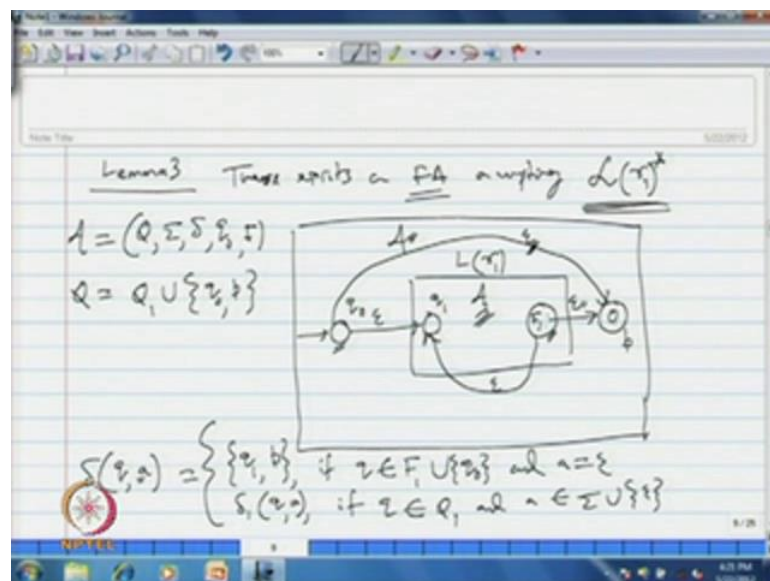 Note1 - Windows Journal
File Edit View Insert Actions Tools Help
Note Title
5/22/2012
Lemma 3 There exists a FA accepting L(r₁)*
A = (Q, Σ, δ, q₀, F)
Q = Q₁ ∪ {q₀, p}
A
ε
L(r₁)
q₀ ε q₁ A₁ F₁ ε p
ε
δ(q, a) = { {q₁, p}, if q ∈ F₁ ∪ {q₀} and a = ε
δ₁(q, a), if q ∈ Q₁ and a ∈ Σ ∪ {ε}
NPTEL
9/25
9
4:21 PM
5/22/2012